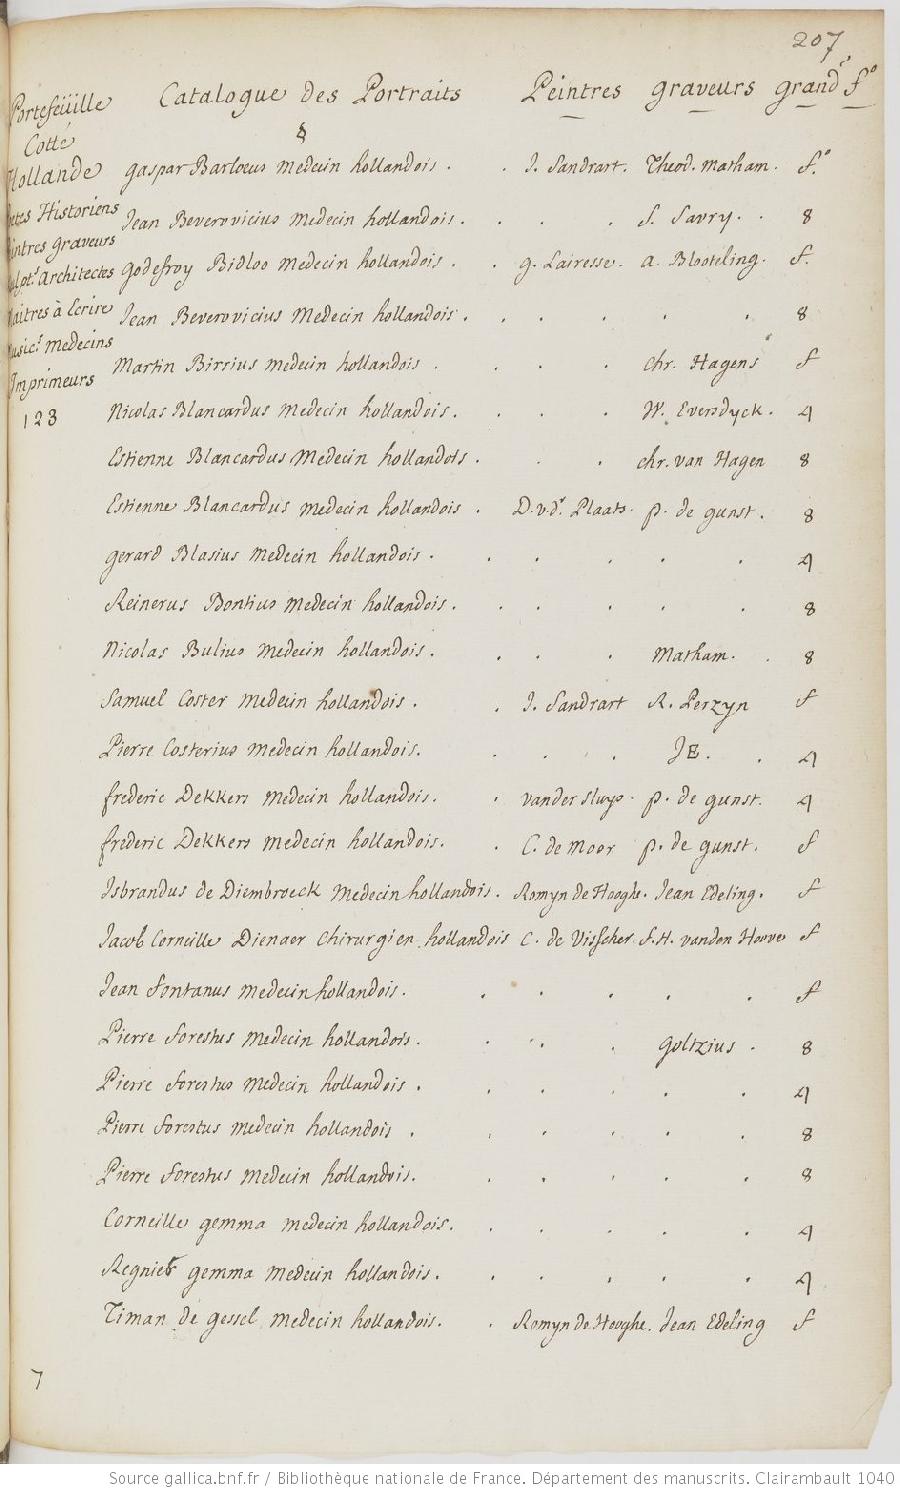 207
Portefeüille
Cotté
Hollande
Poetes Historiens
Peintres graveurs
Sculpt.rs Architectes
Maitres à Ecrire
Music.s medecins
Imprimeurs
123
Catalogue des Portraits Peintres graveurs grand.s f.o
gaspar Barlœus medecin hollandois. . J. Sandrart. Theod. matham. f.o
Jean Beverovicius medecin hollandois. . . . S. Savry. . 8
godefroy Bidloo medecin hollandois. . g. Lairesse. a. Blooteling. f.
Jean Beverovicius Medecin hollandois. . . . . . 8
Martin Birrius medecin hollandois . . . . chr. Hagens f
Nicolas Blancardus medecin hollandois. . . . W. Eversdyck. 4
Estienne Blancardus Medecin hollandois. . . chr. van Hagen 8
Estienne Blancardus medecin hollandois. D. v. d.r Plaats. p. de gunst. 8
gerard Blasius medecin hollandois. . . . . . 4
Reinerus Bontius medecin hollandois. . . . . . 8
Nicolas Bulius medecin hollandois. . . . Matham. . 8
Samuel Coster medecin hollandois. . J. Sandrart R. Perzyn f
Pierre Costerius medecin hollandois. . . . JE. . 4
frederic Dekkers medecin hollandois. . vander Sluys. p. de gunst. 4
frederic Dekkers medecin hollandois. . C. de Moor p. de gunst. f
Isbrandus de Diembroeck Medecin hollandois. Romyn de Hooghe. Jean Edeling. f
Jacob Corneille Dienaer Chirurgien hollandois C. de Visscher S. H. vanden Hoove f
Jean fontanus medecin hollandois. . . . . . f
Pierre forestus medecin hollandois. . . . goltzius . 8
Pierre forestus medecin hollandois . . . . . . 4
Pierre forestus medecin hollandois . . . . . . 8
Pierre forestus medecin hollandois. . . . . . 8
Corneille gemma medecin hollandois. . . . . . 4
Regnier gemma medecin hollandois. . . . . . 4
Timan de gessel medecin hollandois. . Romyn de Hooghe. Jean Edeling f
7
Source gallica.bnf.fr / Bibliothèque nationale de France. Département des manuscrits. Clairambault 1040